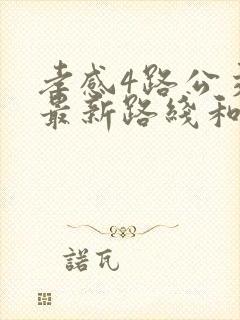 孝感4路公交
最新路线和
諾瓦